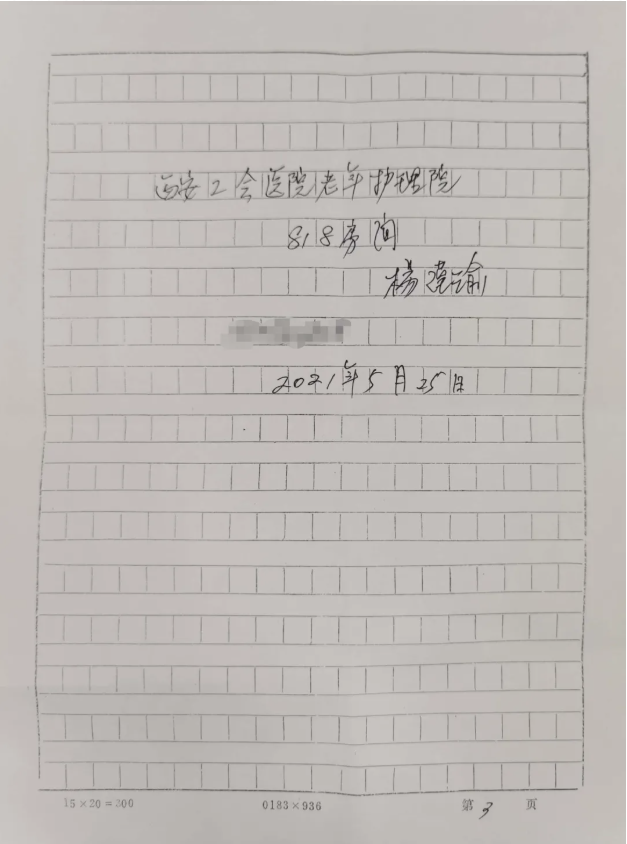 西安工会医院老年护理院
818房间
杨
2021年5月25日
15×20=300 0183×936 第3页